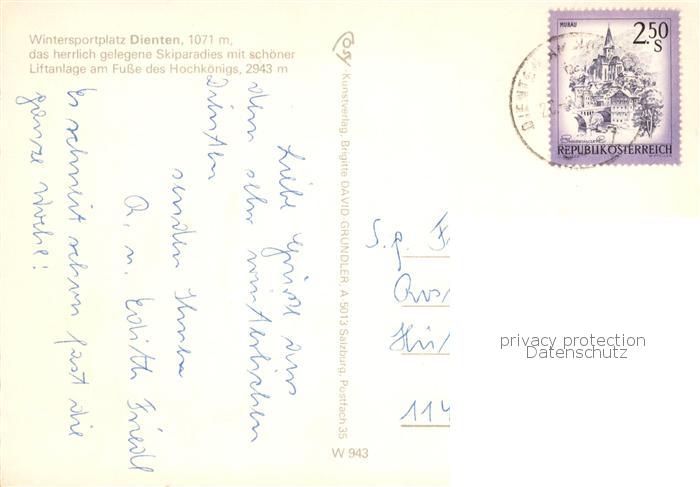 Wintersportplatz Dienten, 1071 m,
das herrlich gelegene Skiparadies mit schöner
Liftanlage am Fuße des Hochkönigs, 2943 m
Liebe Grüße aus
dem sehr winterlichen
Dienten
senden Ihnen
R. u. Edith Friedl
Es schneit schon fast die
ganze Woche!
Cosy - Kunstverlag, Brigitte DAVID GRÜNDLER, A 5013 Salzburg, Postfach 35
W 943
MURAU
2.50
S
REPUBLIK ÖSTERREICH
DIENTEN AM
S. g. F
114
privacy protection
Datenschutz